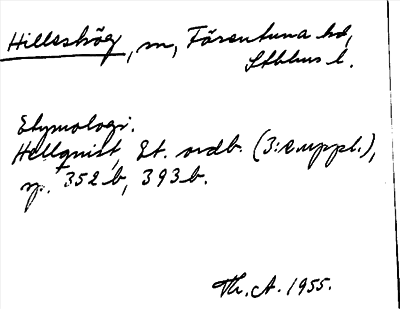 Hilleshög, sn, Färentuna hd,
Sthlms l.
Etymologi.
Hellquist, Et. ordb. (3:e uppl.),
sp. 352 b, 393 b.
Th. A. 1955.